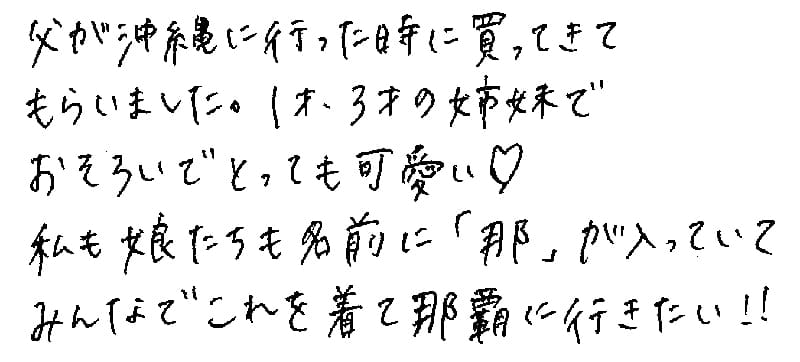 父が沖縄に行った時に買ってきて
もらいました。1才、3才の姉妹で
おそろいでとっても可愛い♡
私も娘たちも名前に「那」が入っていて
みんなでこれを着て那覇に行きたい!!